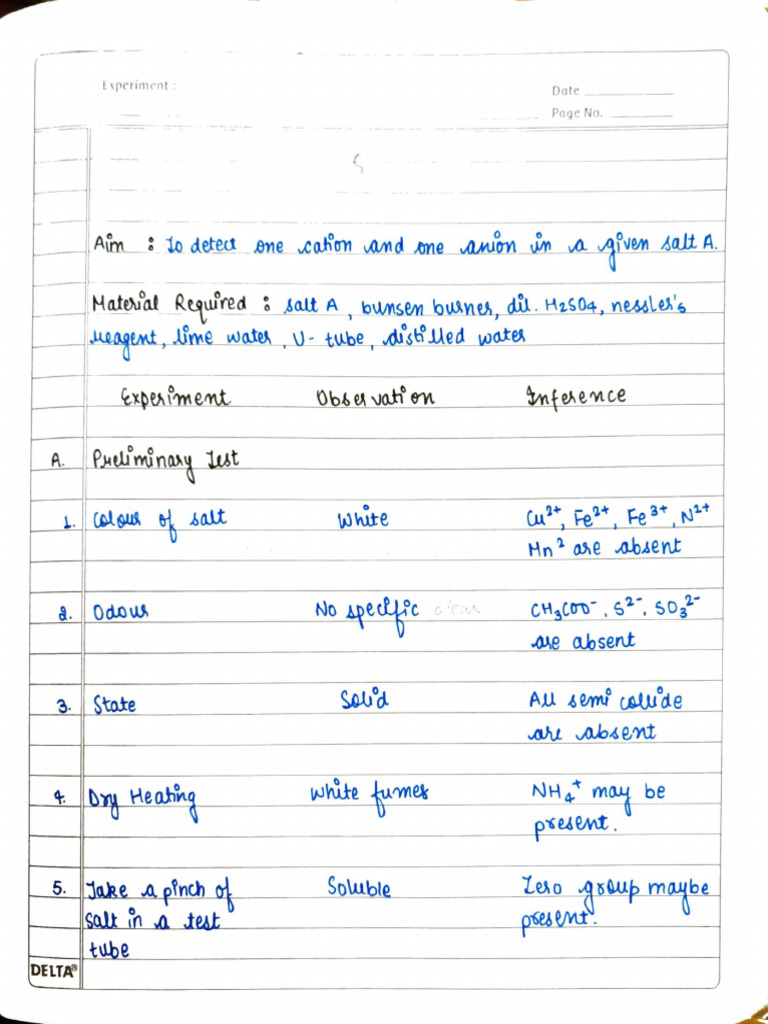 Experiment :
Date
Page No.
5
Aim : To detect one cation and one anion in a given salt A.
Material Required : salt A, bunsen burner, dil. H2SO4, nessler's
reagent, lime water, U-tube, distilled water
Experiment Observation Inference
A. Preliminary Test
1. Colour of salt White Cu²⁺, Fe²⁺, Fe³⁺, N²⁺
Mn² are absent
2. Odour No specific odour CH₃COO⁻, S²⁻, SO₃²⁻
are absent
3. State Solid All semi collide
are absent
4. Dry Heating White fumes NH₄⁺ may be
present.
5. Take a pinch of Soluble Zero group maybe
salt in a test present.
tube
DELTA®